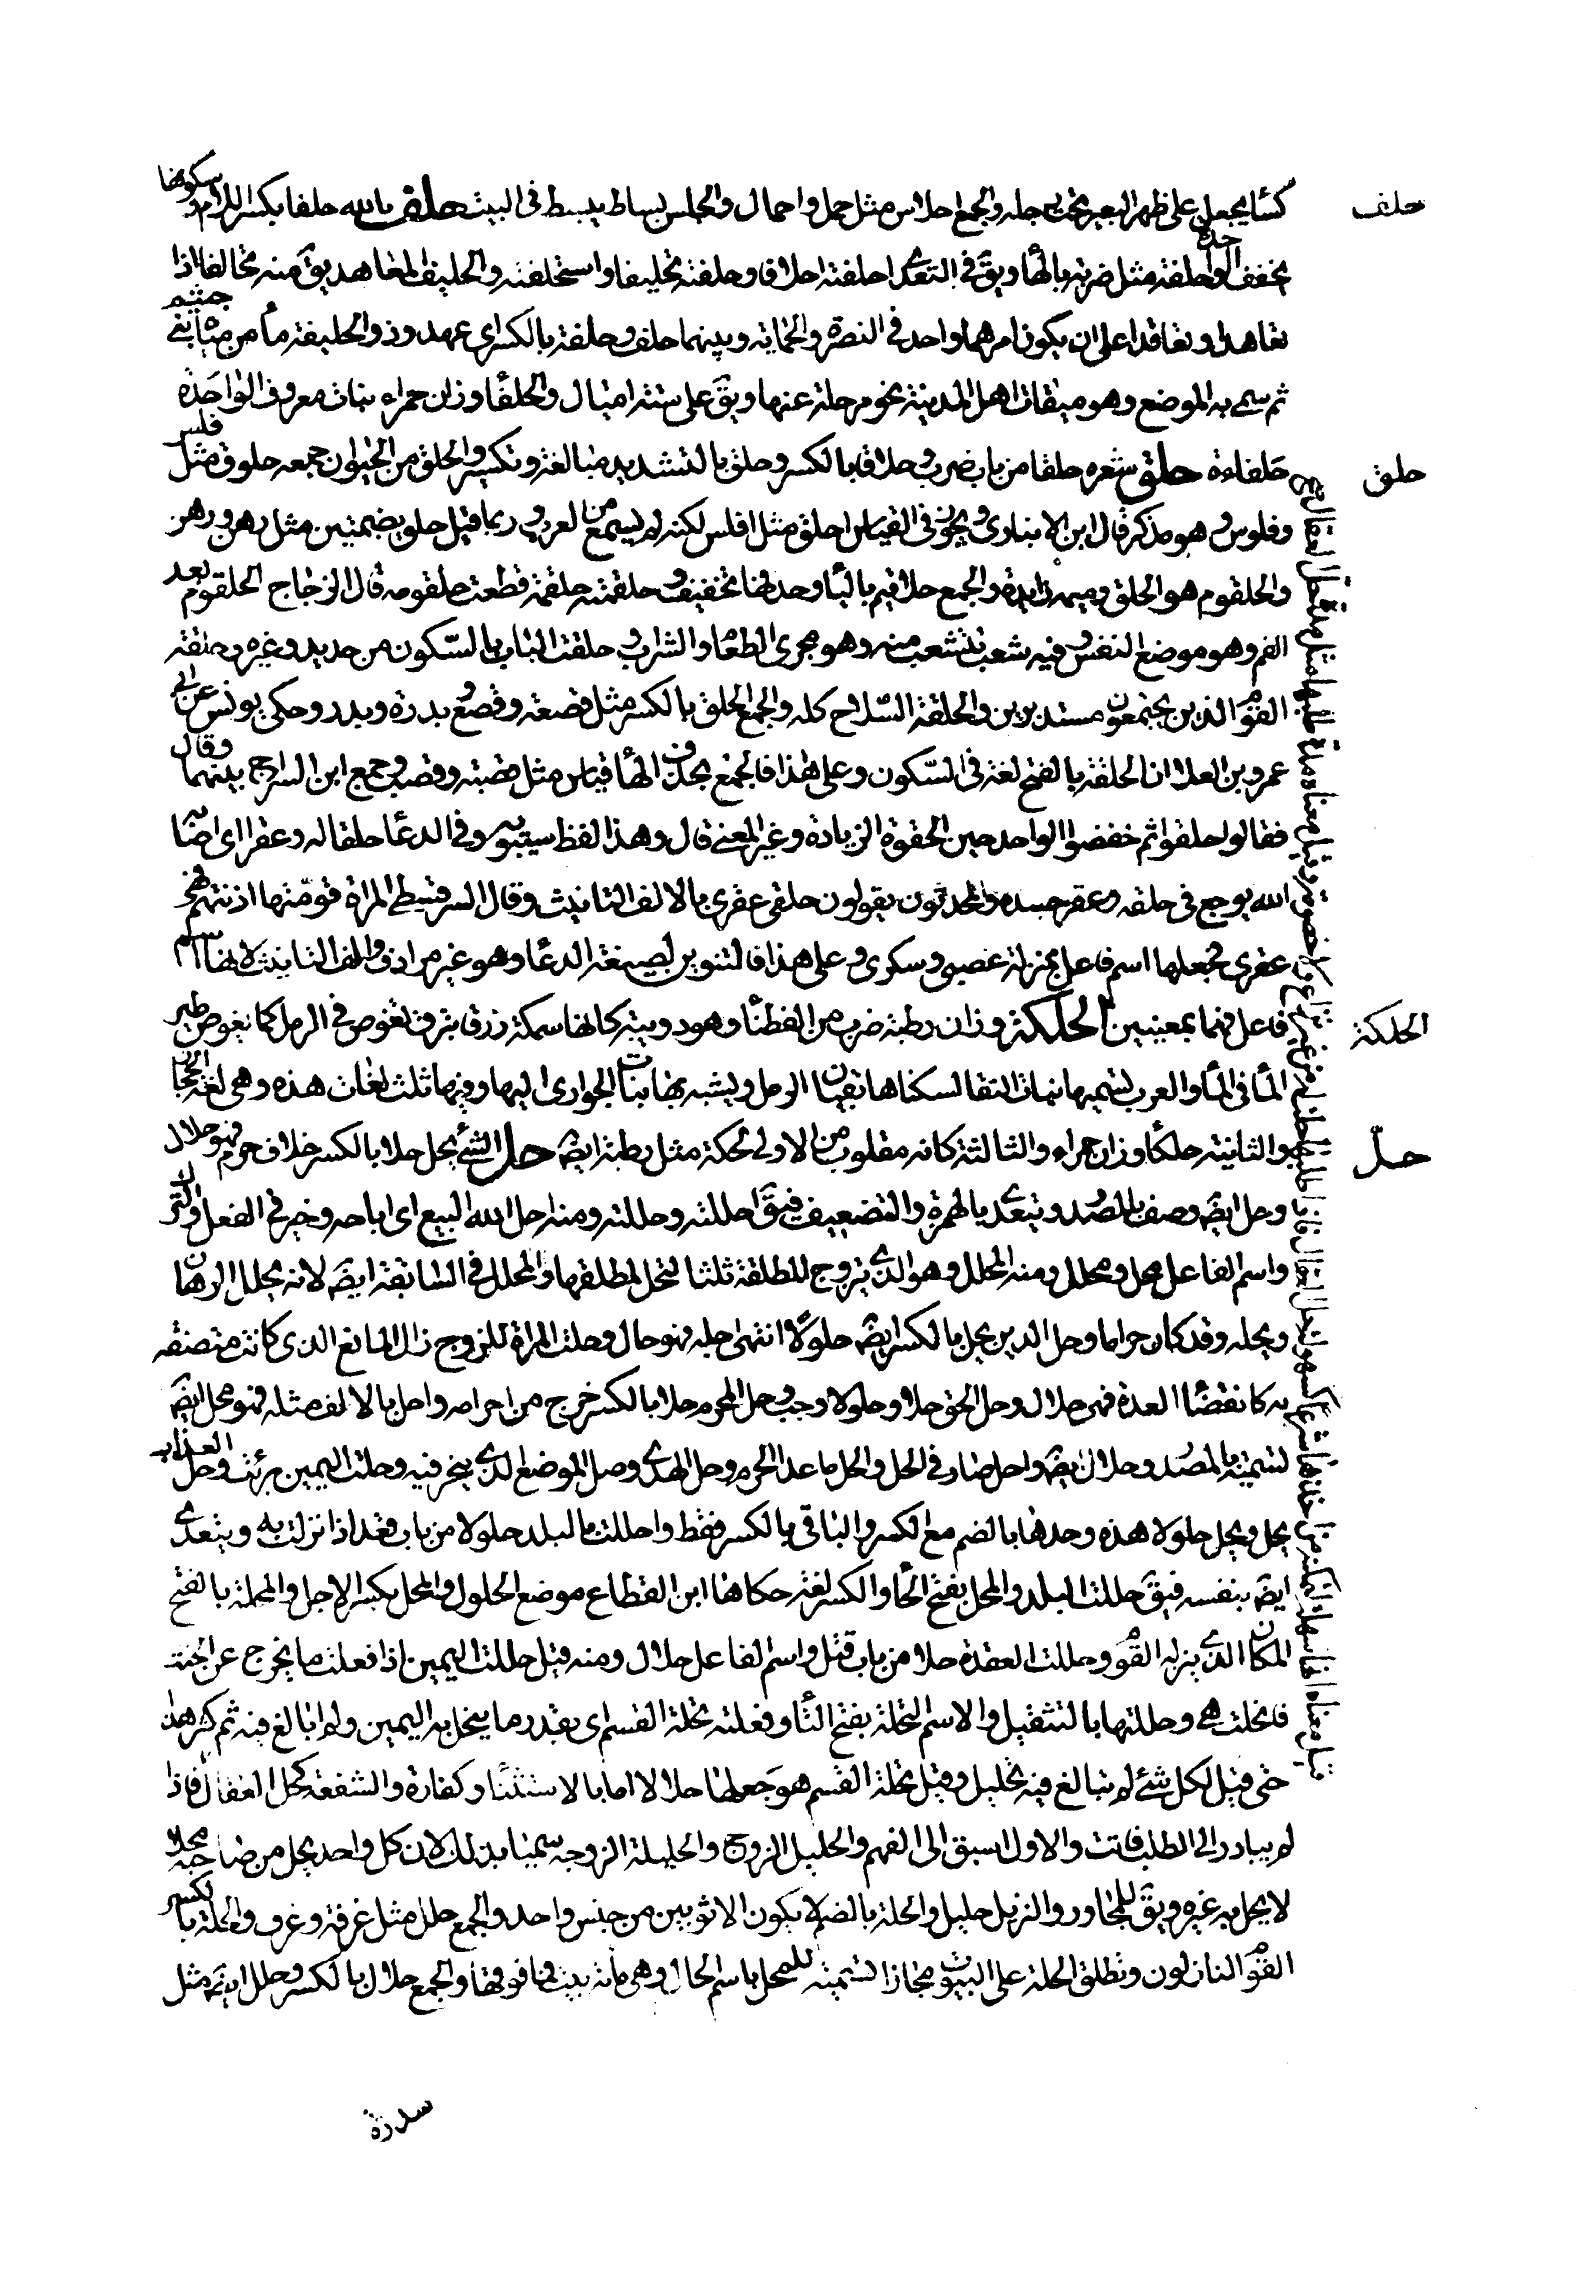 حلف
كسا يجعل على ظهر البعير تحت رحله والجمع احلاس مثل حمل واحمال والحلس بساط يبسط فى البيت حلف بالله حلفا بكسر اللام وسكونها
تخفف الواحدة حلفة مثل ضربة بالهاء ويق فى التعدى احلفته احلافا وحلفته تحليفا واستحلفته والحليف المعاهد يق منه تحالفا اذا
تعاهدا وتعاقدا على ان يكون امرهما واحد فى النصرة والحماية وبينهما حلف وحلفة بالكسر اى عهد وذو الحليفة ماء من مياه بنى جشم
ثم سمى به الموضع وهو ميقات اهل المدينة نحو مرحلة عنها ويق على ستة اميال والحلفا وزان حمراء نبات معروف الواحدة
حلق
حلفاءة حلق شعره حلقا من باب ضرب وحلاقا بالكسر وحلق بالتشديد مبالغة وتكسير والحلق من الحيوان جمعه حلوق مثل فلس
وفلوس وهو مذكر قال ابن الانبارى ويجوز فى القياس احلق مثل افلس لكنه لم يسمع من العرب وربما قيل حلق بضمتين مثل رهن ورهن
والحلقوم هو الحلق وميمه زايدة والجمع حلاقيم باليا وحذفها تخفيف وحلقمته حلقمة قطعت حلقومه قال الزجاج الحلقوم بعد
الفم وهو موضع النفس وفيه شعب تتشعب منه وهو مجرى الطعام والشراب وحلقة الباب بالسكون من حديد وغيره وحلقة
القوم الذين يجتمعون مستديرين والحلقة السلاح كله والجمع الحلق بالكسر مثل قصعة وقصع وبدرة وبدر وحكى يونس عن ابى
عمرو بن العلا ان الحلقة بالفتح لغة فى السكون وعلى هذا فالجمع بحذف الهاء قياس مثل قصبة وقصب وجمع ابن السراج بينهما وقال
فقالوا حلق ثم خفضوا الواحد حين الحقوه الزيادة وغير المعنى قال وهذا لفظ سيبويه وفى الدعا حلقا له وعقرا اى اصابه
الله بوجع فى حلقه وعقر جسده والمحدثون يقولون حلقى عقرى بالالف التانيث وقال السرقسطى المراة قومها اذنتهم فهى
عقرى فجعلها اسم فاعل بمنزلة غضبى وسكرى وعلى هذا فالتنوين لصيغة الدعا وهو غير مراد والف التانيث لانها اسم
الحلكة
فاعل فهما بمعنيين الحلكة وزان رطبة ضرب من العظاء وهو دويبة كانها سمكة زرقا تبرق تغوص فى الرمل كما يغوص طير
الما فى الما والعرب تسميها بنات النقا لسكناها نقيان الرمل وتشبه بها بنات الجوارى لينها وفيها ثلث لغات هذه وهى لغة الحجاز
حل
والثانية حلكا وزان حمراء والثالثة كانه مقلوب من الاولى لحكة مثل رطبة ايضا حل الشئ يحل حلا بالكسر خلاف حرم فهو حلال
وحل ايضا وصف بالمصدر ويتعدى بالهمزة والتضعيف فيق احللته وحللته ومنه احل الله البيع اى اباحه وخير فى الفعل والترك
واسم الفاعل محل ومحلل ومنه المحلل وهو الذى يتزوج المطلقة ثلثا لتحل لمطلقها والمحلل فى السابقة ايضا لانه يحلل الرهان
ويحله وقد كان حراما وحل الدين يحل بالكسر ايضا حلولا انتهى اجله فهو حال وحلت المراة للزوج زال المانع الذى كانت متصفة
به كانقضاء العدة فهى حلال وحل الحق حلا وحلولا وجب وحل المحرم حلا بالكسر خرج من احرامه واحل بالالف مثله فهو محل ايضا
تسمية بالمصدر وحلال ايضا واحل صار فى الحل والحل ما عدا الحرم وحل الهدى وصل الموضع الذى ينحر فيه وحلت اليمين برئت وحل العذاب
يحل ويحل حلولا هذه وحدها بالضم مع الكسر والباقى بالكسر فقط واحللت بالبلد حلولا من باب قعد اذا نزلت به ويتعدى
ايضا بنفسه فيق حللت البلد والمحل بفتح الحا والكسر لغة حكاها ابن القطاع موضع الحلول والمحل بكسر الاجل والمحلة بالفتح
المكان الذى ينزله القوم وحللت العقدة حلا من باب قتل واسم الفاعل حلال ومنه قيل حللت اليمين اذا فعلت ما يخرج عن الحنث
فانحلت هى وحللتها بالتثقيل والاسم التحلة بفتح التا وفعلته تحلة القسم اى بقدر ما ينحل به اليمين ولم ابالغ فيه ثم كثر هذا
حتى قيل لكل شئ لم يبالغ فيه تحليل وقيل تحلة القسم هو جعلها حلالا اما بالاستثناء وكفارة والشفعة كحل العقال فاذا
لم يبادر الى الطلب فاتت والاول اسبق الى الفهم والحليل الزوج والحليلة الزوجة سميا بذلك لان كل واحد يحل من صاحبه محلا
لا يحل به غيره ويق للمجاور والنزيل حليل والحلة بالضم لا يكون الا ثوبين من جنس واحد والجمع حلل مثل غرفة وغرف والحلة بالكسر
القوم النازلون وتطلق الحلة على البيوت مجازا تسمية للمحل باسم الحال وهى ماية بيت فما فوقها والجمع حلال بالكسر وحلل ايضا مثل
سدرة